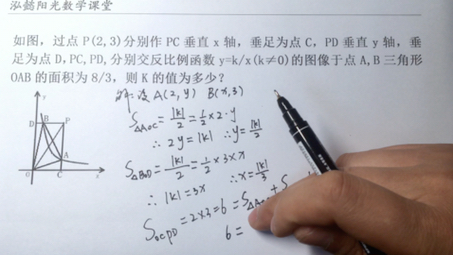 泓懿阳光数学课堂
如图，过点 P(2,3)分别作 PC 垂直 x 轴，垂足为点 C，PD 垂直 y 轴，垂
足为点 D,PC,PD,分别交反比例函数 y=k/x(k≠0)的图像于点 A,B 三角形
OAB 的面积为 8/3，则 K 的值为多少?
解:设 A(2,y) B(x,3)
S△AOC = |k|/2 = 1/2 × 2·y
∴ 2y = |k| ∴ y = |k|/2
S△BOD = |k|/2 = 1/2 × 3 × x
∴ |k| = 3x ∴ x = |k|/3
SOCPD = 2×3 = 6 = S△A + S
6 =
y
D B P
A
O C x